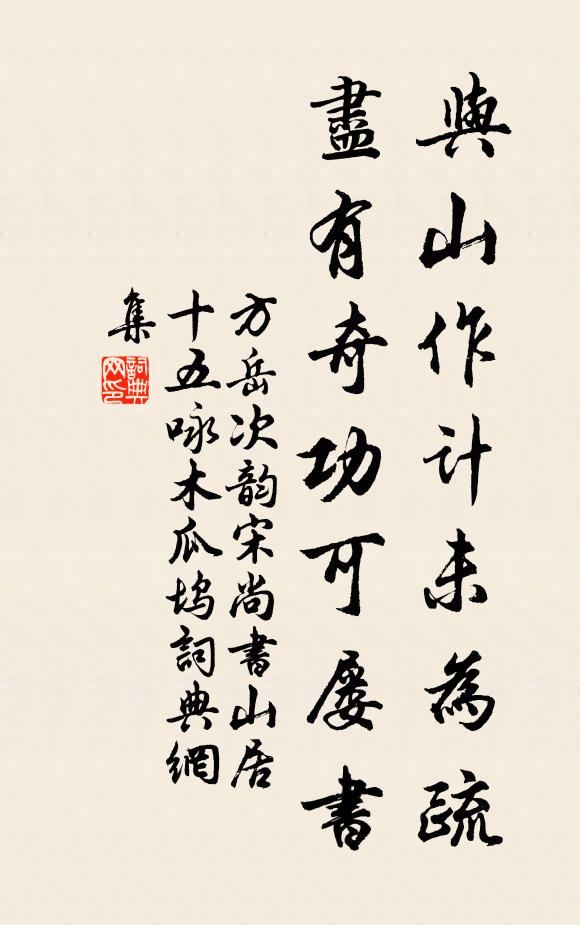 與山作計未為疏
盡有奇功可屡書
方岳次韵宋尚書山居
十五咏木瓜坞詞典網
集
詞典网印